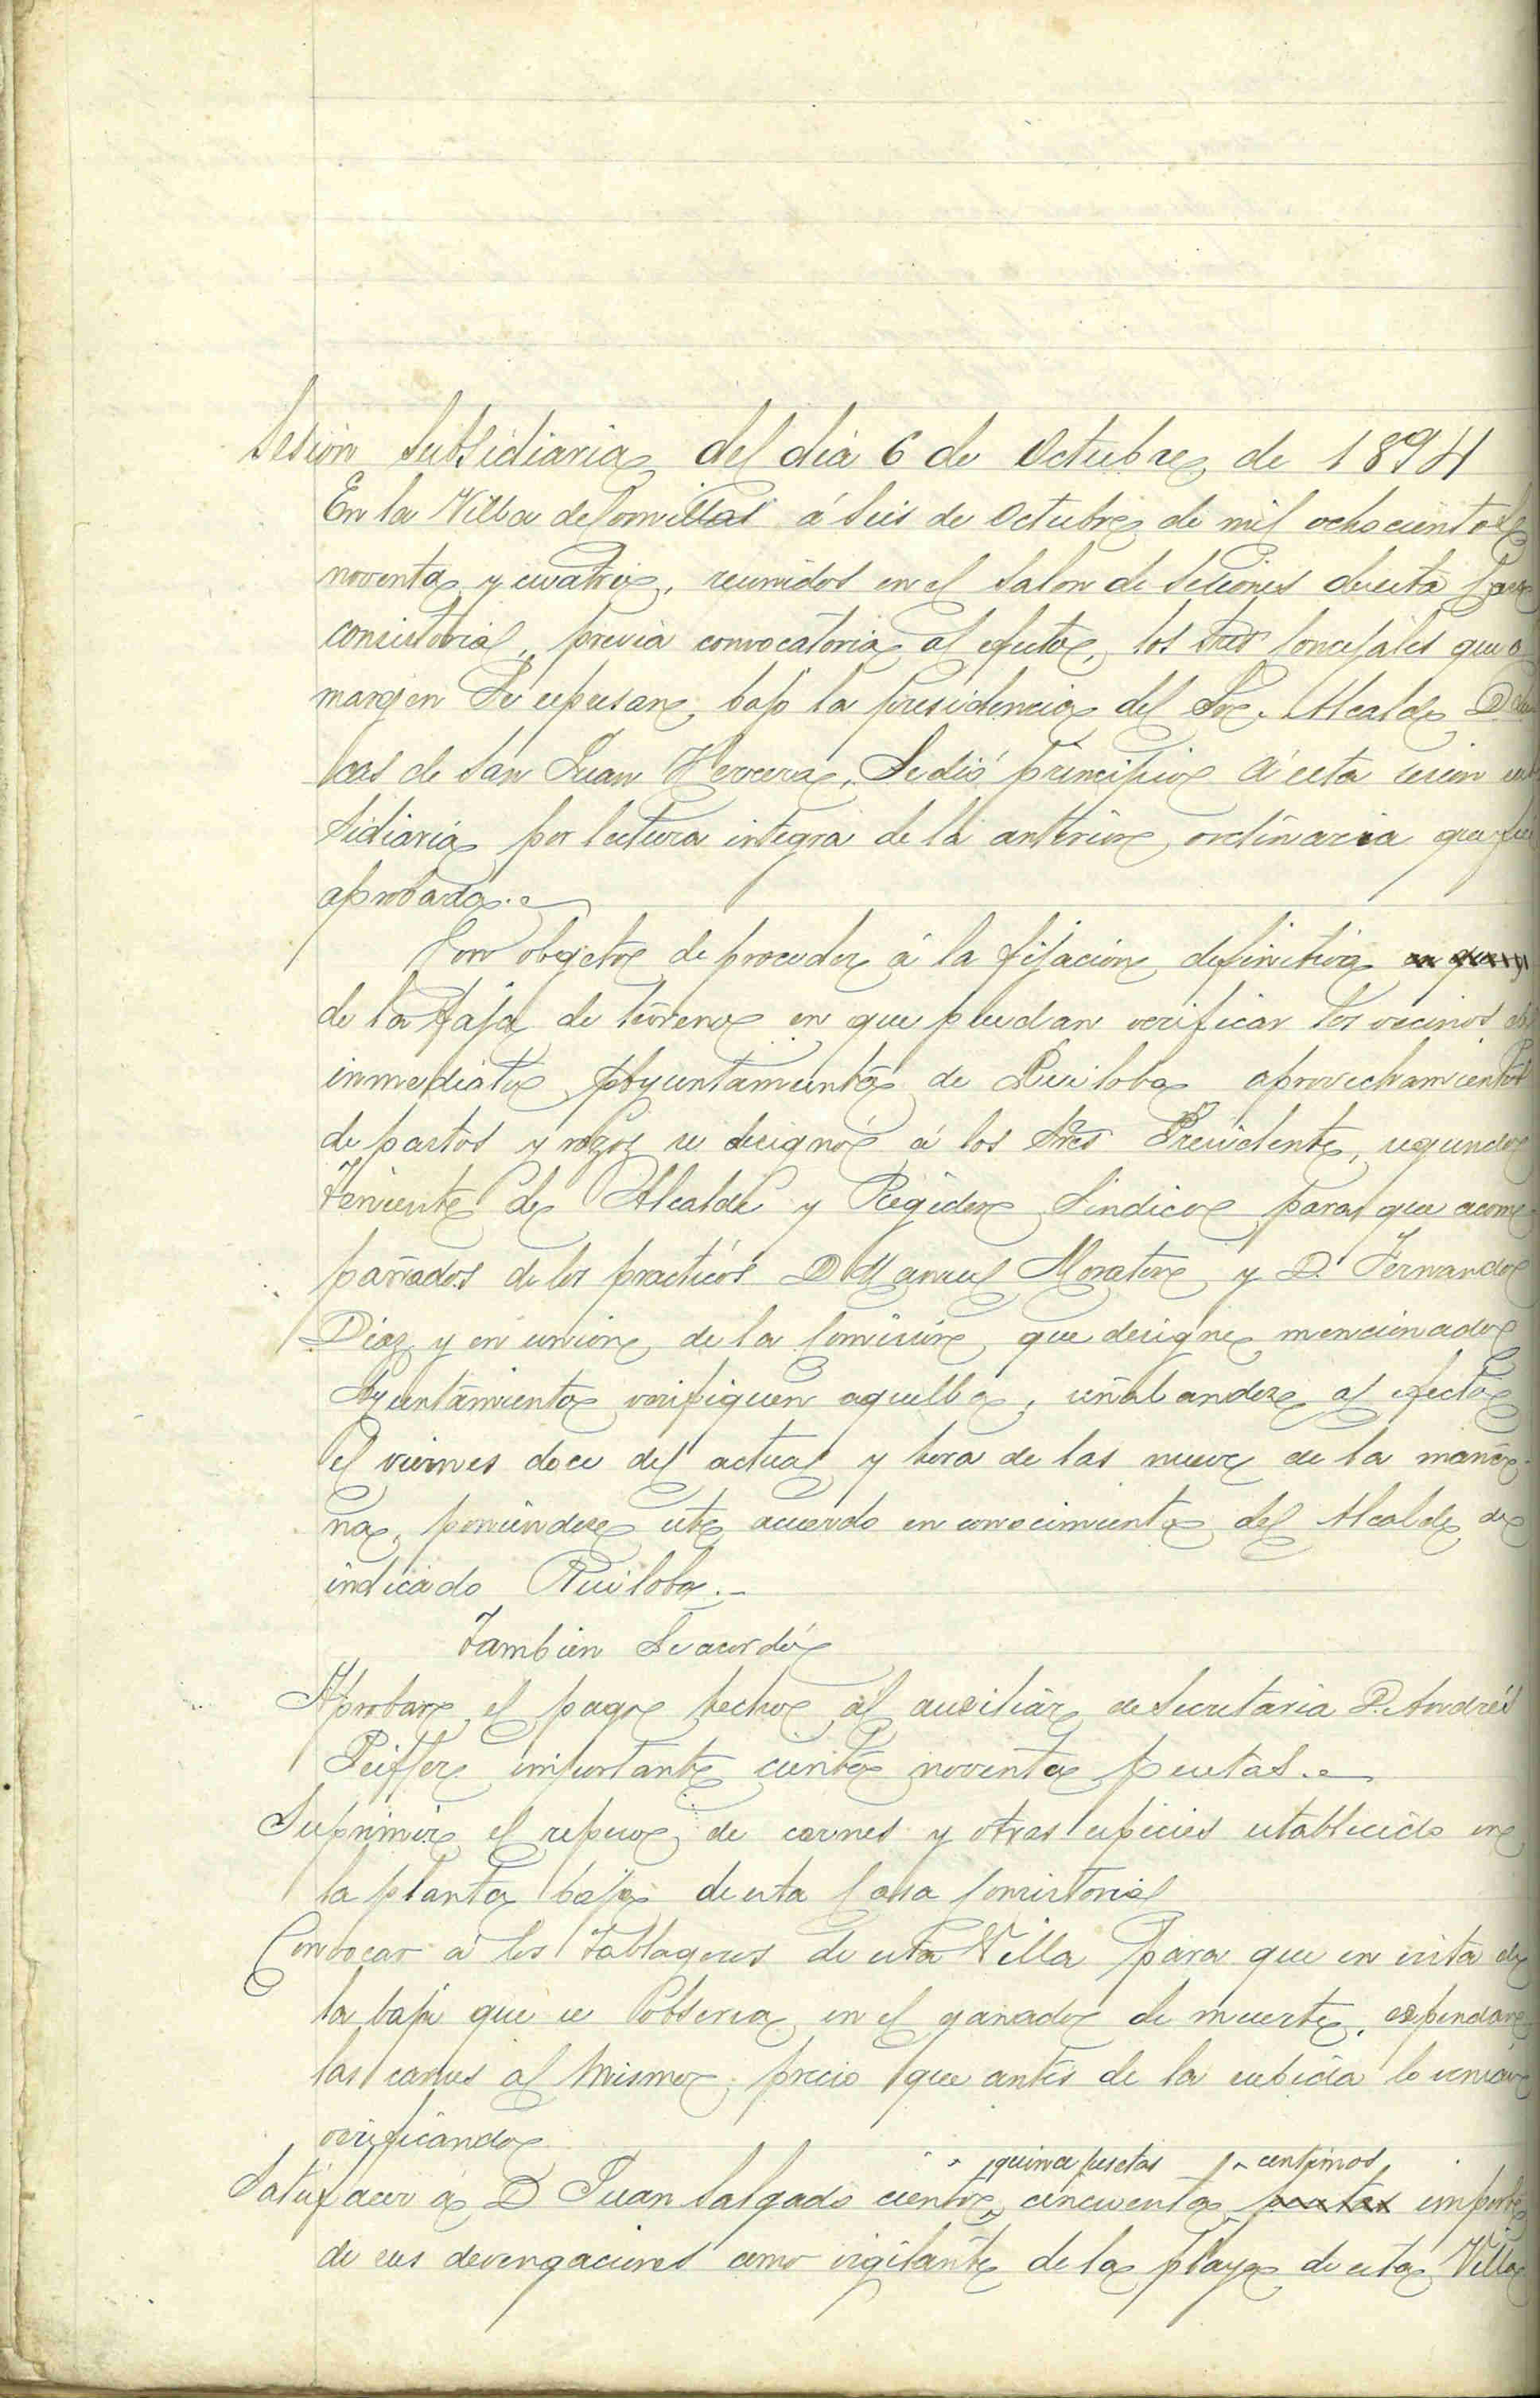 Sesion Subsidiaria del dia 6 de Octubre de 1894
En la Villa de Comillas á seis de Octubre de mil ochocientos
noventa y cuatro, reunidos en el salon de sesiones de esta Casa
consistorial, previa convocatoria al efecto, los Sres Concejales que al
margen se expresan, bajo la presidencia del Sr. Alcalde D.
cas de San Juan Herrera, Se dió principio á esta sesion sub
sidiaria por lectura integra de la anterior ordinaria que fué
aprobada.
Con objeto de proceder á la fijacion definitiva
de la faja de terreno en que puedan verificar los vecinos del
inmediato Ayuntamiento de Ruiloba aprovechamientos
de pastos y rozo se designó á los Sres Presidente, segundo
Teniente de Alcalde y Regidor Sindico para que acom
pañados de los practicos D Manuel Morator y D. Fernando
Diaz y en union de la Comision que designe mencionado
Ayuntamiento verifiquen aquella, señalandose al efecto
el viernes doce del actual y hora de las nueve de la maña-
na, poniendose este acuerdo en conocimiento del Alcalde de
indicado Ruiloba.-
Tambien Se acordó
Aprobar el pago hecho al auxiliar de Secretaria D. Andrés
Peiffer importante ciento noventa pesetas.
Suprimir el repeso de carnes y otras especies establecido en
la planta baja de esta Casa Consistorial
Convocar á los tablageros de esta Villa para que en vista de
la baja que se observa en el ganado de muerte, expendan
las carnes al mismo precio que antes de la subida lo venian
verificando
quince pesetas centimos
Satisfacer á D Juan Salgado ciento cincuenta pesetas importe
de sus devengaciones como vigilante de la playa de esta Villa